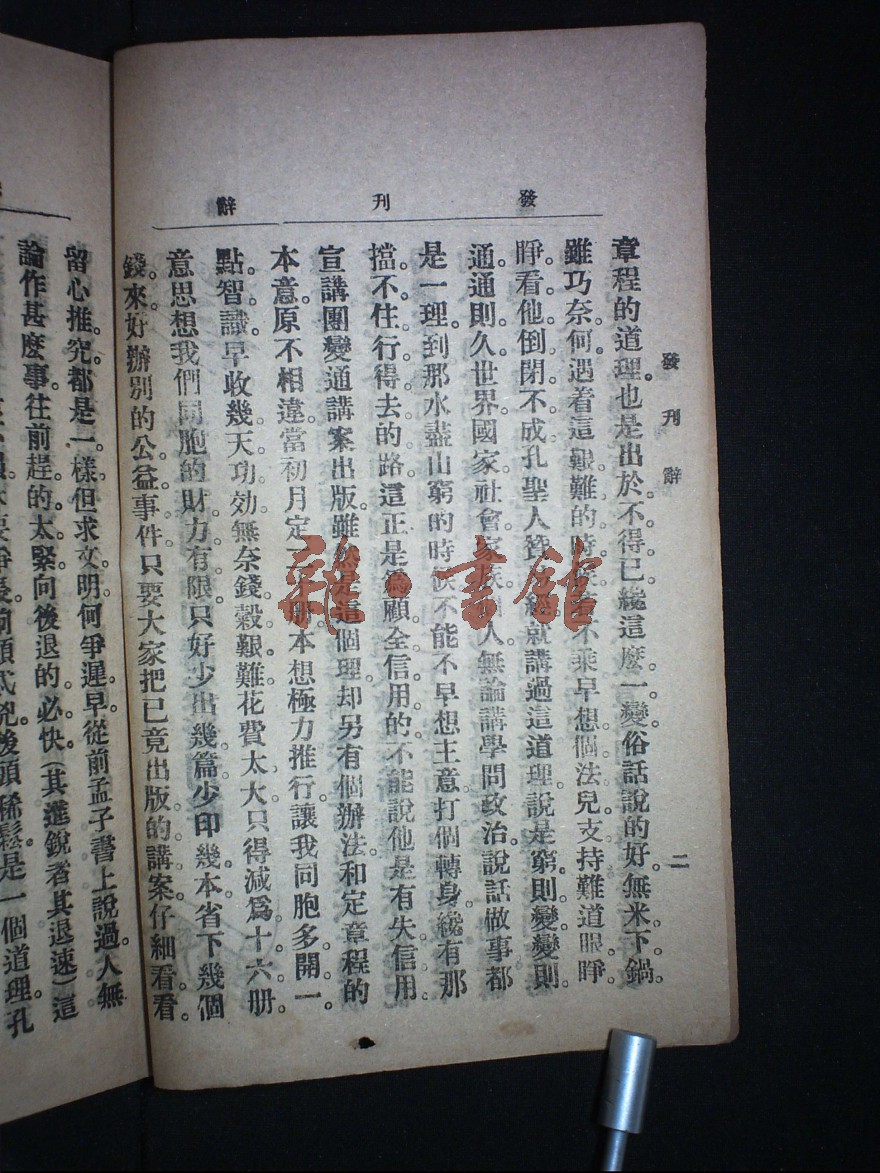 發刊辭
發刊辭
二
章程的道理。也是出於不得已纔這麼一變。俗話說的好。無米下鍋。
雖巧奈何。遇着這艱難的時不乘早想個法兒支持。難道眼睜
睜看他倒閉不成。孔聖人就講過這道理。說是窮則變。變則
通。通則久。世界國家社會家族人。無論講學問政治說話做事。都
是一理。到那水盡山窮的時候。不能不早想主意。打個轉身。纔有那
擋不住行得去的路。這正是為顧全信用的。不能說他是有失信用。
宣講團變通講案出版。雖是這個理。却另有個辦法。和定章程的
本意。原不相違。當初月定册。本想極力推行。讓我同胞多開一
點智識。早收幾天功効。無奈錢穀艱難。花費太大。只得減爲十六册。
意思想我們同胞的財力有限。只好少出幾篇。少印幾本。省下幾個
錢來。好辦別的公益事件。只要大家把已竟出版的講案。仔細看看。
留心推究。都是一樣。但求文明。何爭遲早。從前孟子書上說過。人無
論作甚麽事。往前趕的太緊。向後退的必快。(其進銳者其退速)這
後頭稀鬆。是一個道理。孔
雜·書館